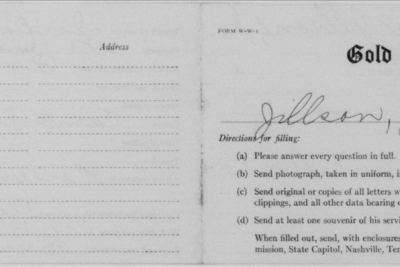 Address
FORM W-W-1
Gold
Jillson,
Directions for filling:
(a) Please answer every question in full.
(b) Send photograph, taken in uniform, i
(c) Send original or copies of all letters w
clippings, and all other data bearing o
(d) Send at least one souvenir of his servi
When filled out, send, with enclosures
mission, State Capitol, Nashville, Ten